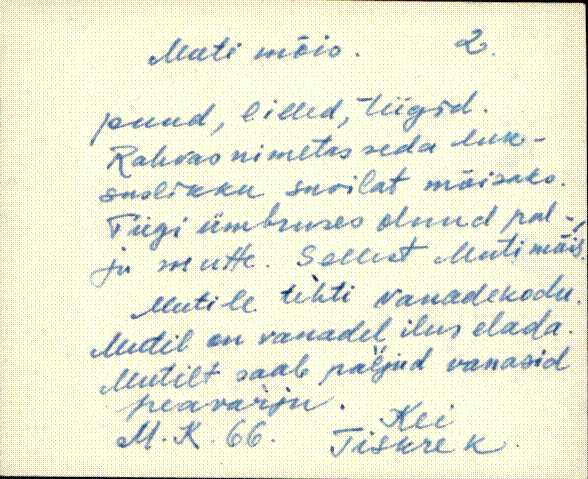 Muti mõis. 2.
puud, lilled, tiigid.
Rahvas nimetas seda luk-
suslikku suvilat mõisaks.
Tiigi ümbruses olnud pal-
ju mutte. Sellest Muti mõis.
Mutile tehti Vanadekodu.
Mutil on vanadel ilus elada.
Mutilt saab paljud vanasid
peavarju.
M. K. 66. Kei
Tiskrek.